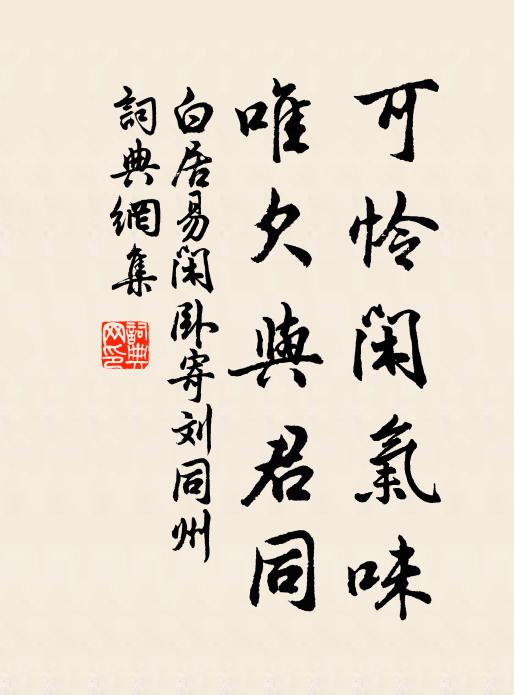 可怜閑氣味
唯欠與君同
白居易閑卧寄刘同州
詞典網集
詞典網印